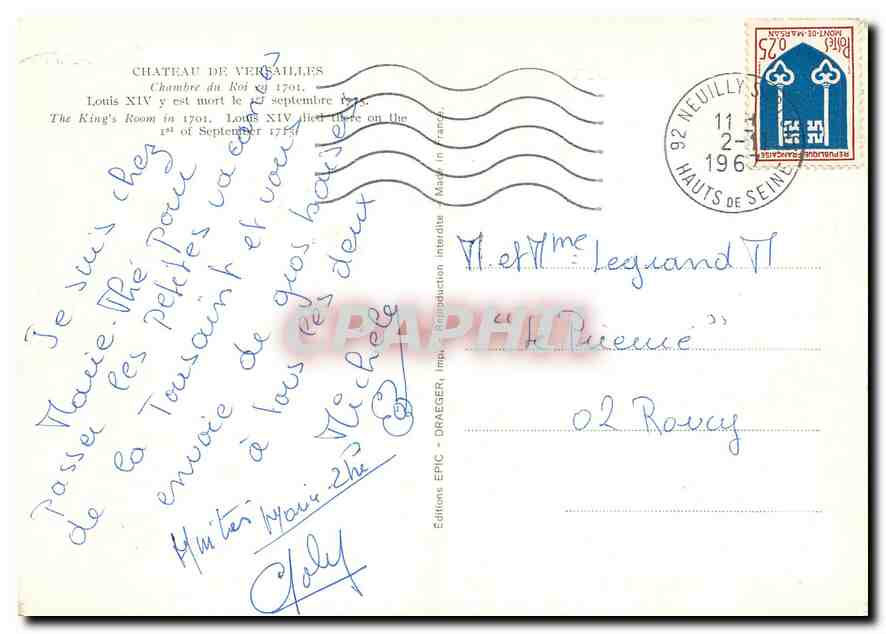 CHATEAU DE VERSAILLES
Chambre du Roi en 1701.
Louis XIV y est mort le 1er septembre 1715.
The King's Room in 1701. Louis XIV died there on the
1st of September 1715.
Je suis chez
Marie-Thé pour
passer les petites vacances
de la Toussaint et vous
envoie de gros baisers
à tous les deux
Michèle
Amitiés Marie-Thé
Joly
Editions EPIC - DRAEGER, Imp. - Reproduction interdite - Made in France.
POSTES
0,25
MONT-DE-MARSAN
REPUBLIQUE FRANÇAISE
92 NEUILLY S
11
2-11
1967
HAUTS DE SEINE
M. et Mme Legrand M
"Le Prieuré"
02 Roucy
CPAPHIL